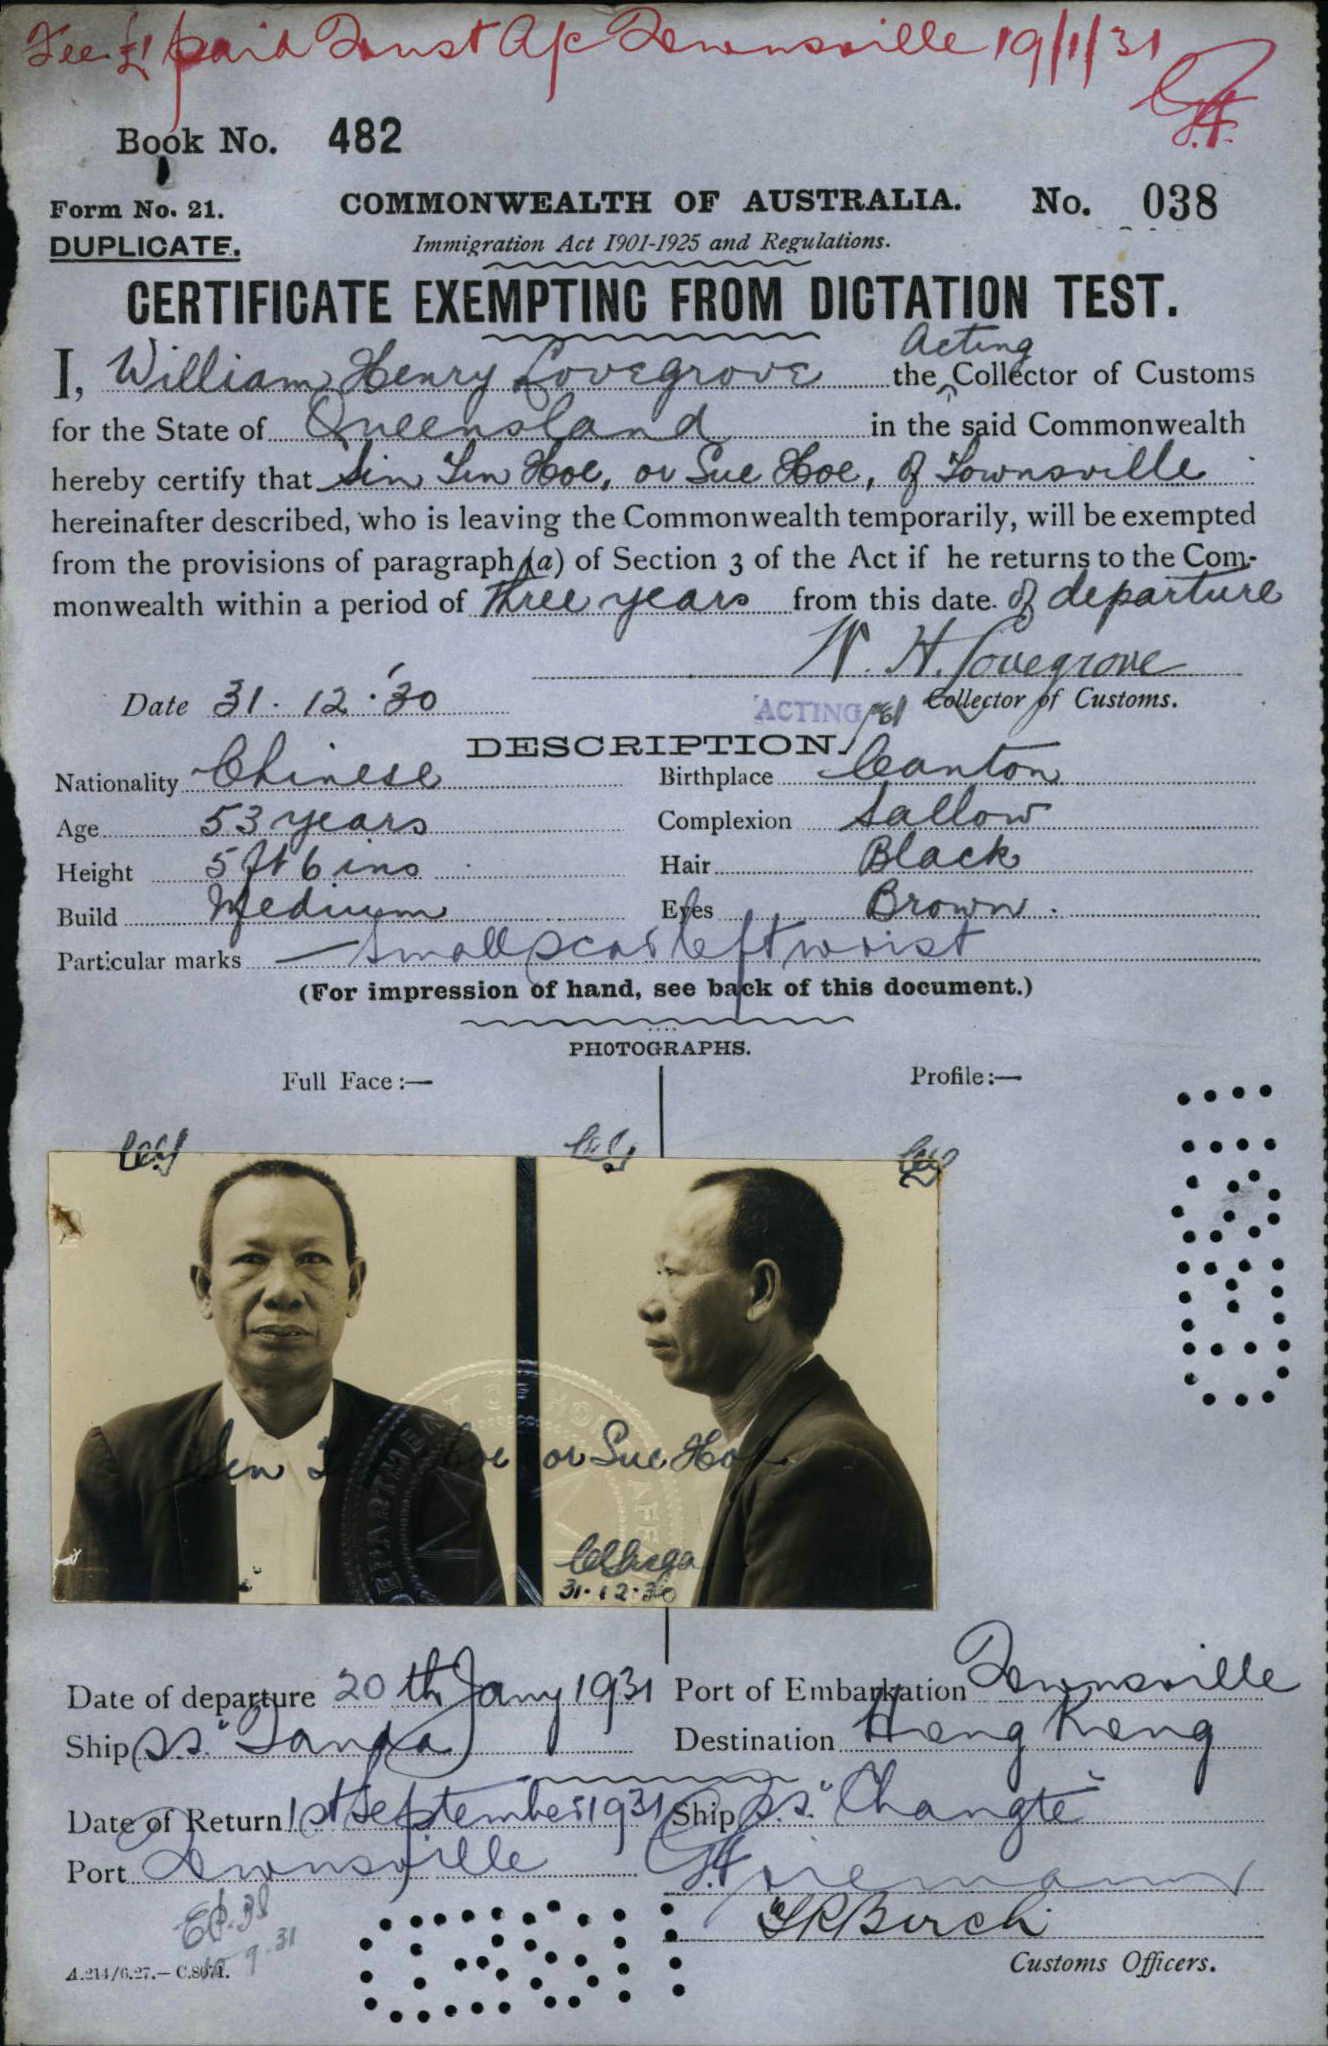 Fee £1 paid Trust A/c Townsville 19/1/31
Book No. 482
Form No. 21.
COMMONWEALTH OF AUSTRALIA. No. 038
DUPLICATE.
Immigration Act 1901-1925 and Regulations.
CERTIFICATE EXEMPTING FROM DICTATION TEST.
I, William Henry Lovegrove the Acting Collector of Customs
for the State of Queensland in the said Commonwealth
hereby certify that Sin Yin Hoe, or Sue Hoe, of Townsville
hereinafter described, who is leaving the Commonwealth temporarily, will be exempted
from the provisions of paragraph (a) of Section 3 of the Act if he returns to the Com-
monwealth within a period of three years from this date of departure
W. H. Lovegrove
Date 31.12.'30
ACTING Collector of Customs.
DESCRIPTION.
Nationality Chinese Birthplace Canton
Age 53 years Complexion Sallow
Height 5 ft 6 ins Hair Black
Build Medium Eyes Brown.
Particular marks — Small scar left wrist
(For impression of hand, see back of this document.)
PHOTOGRAPHS.
Full Face:— Profile:—
or Sue Hoe
31.12.30
DEPARTMENT
Date of departure 20th Jany 1931 Port of Embarkation Townsville
Ship S.S. "Tanda" Destination Hong Kong
Date of Return 1st September 1931 Ship S.S. "Changte"
Port Townsville
Birch
Customs Officers.